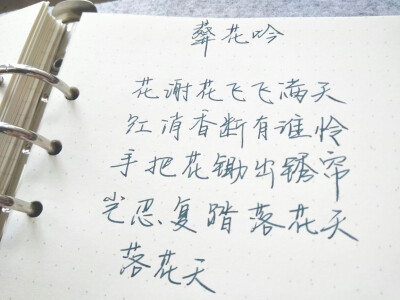 葬花吟
花谢花飞飞满天
红消香断有谁怜
手把花锄出锈帘
岂忍复踏落花天
落花天